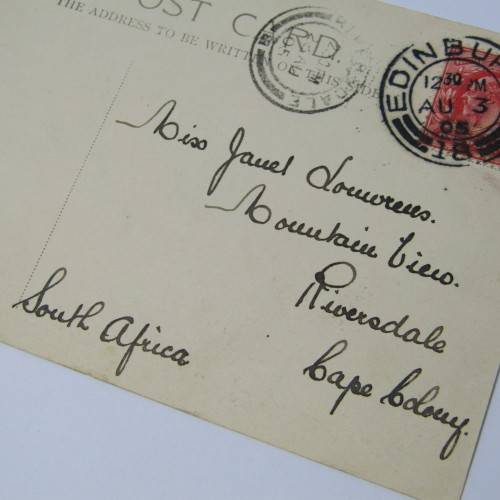 POST CARD.
THE ADDRESS TO BE WRITTEN ON THIS SIDE
RIVERSDALE
EDINBUR
12 30 PM
AU 3
05
18
Miss Janet
Mountain View.
Riversdale
Cape Colony.
South Africa